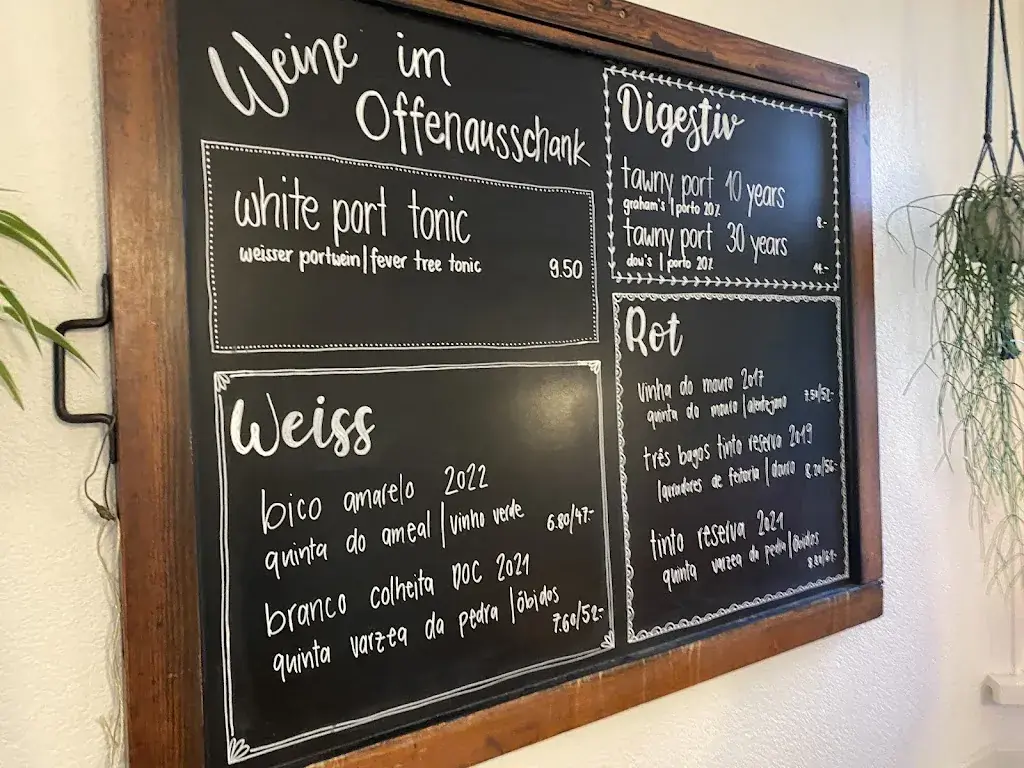 Weine im
Offenausschank
white port tonic
weisser portwein | fever tree tonic 9.50
Weiss
bico amarelo 2022
quinta do ameal | vinho verde 6.80/47.-
branco colheita DOC 2021
quinta varzea da pedra | óbidos 7.60/52.-
Digestiv
tawny port 10 years
graham's | porto 20% 8.-
tawny port 30 years
dow's | porto 20%
Rot
vinha do mouro 2017
quinta do mouro | alentejano 7.50/52.-
três bagos tinto reserva 2019
lavradores de feitoria | douro 8.20/56.-
tinto reserva 2021
quinta varzea da pedra | óbidos